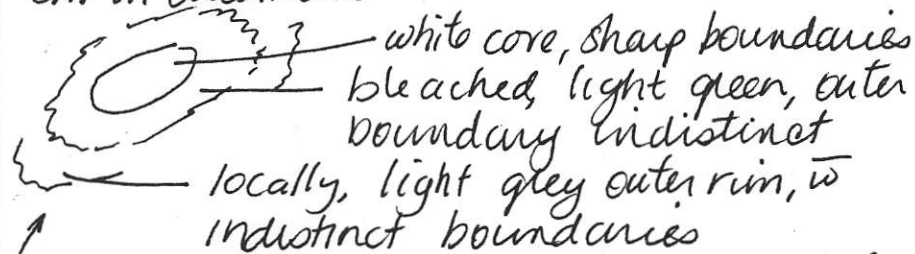 white core, sharp boundaries
bleached, light green, outer
boundary indistinct
locally, light grey outer rim, w̅
indistinct boundaries